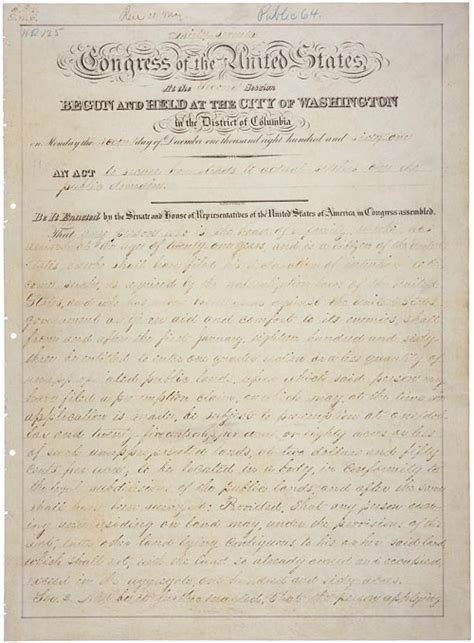 Public 64.
HR 125
Thirty-Seventh
Congress of the United States,
At the Second Session
BEGUN AND HELD AT THE CITY OF WASHINGTON
in the District of Columbia
on Monday the second day of December one thousand eight hundred and sixty-one
AN ACT to secure homesteads to actual settlers on the
public domain.
Be It Enacted by the Senate and House of Representatives of the United States of America in Congress assembled,
That any person who is the head of a family, or who has
arrived at the age of twenty one years, and is a citizen of the United
States, or who shall have filed his declaration of intention to be-
come such, as required by the naturalization laws of the United
States, and who has never borne arms against the United States
government or given aid and comfort to its enemies, shall
from and after the first January, eighteen hundred and sixty
three, be entitled to enter one quarter section or a less quantity of
unappropriated public lands, upon which said person may
have filed a preemption claim, or which may, at the time the
application is made, be subject to preemption at one dol-
lar and twenty-five cents, or less, per acre; or eighty acres or less
of such unappropriated lands, at two dollars and fifty
cents per acre, to be located in a body, in conformity to
the legal subdivisions of the public lands, and after the same
shall have been surveyed: Provided, That any person own-
ing and residing on land may, under the provisions of this
act, enter other land lying contiguous to his or her said land
which shall not, with the land so already owned and occupied,
exceed in the aggregate one hundred and sixty acres.
Sec. 2. And be it further enacted, That the person applying